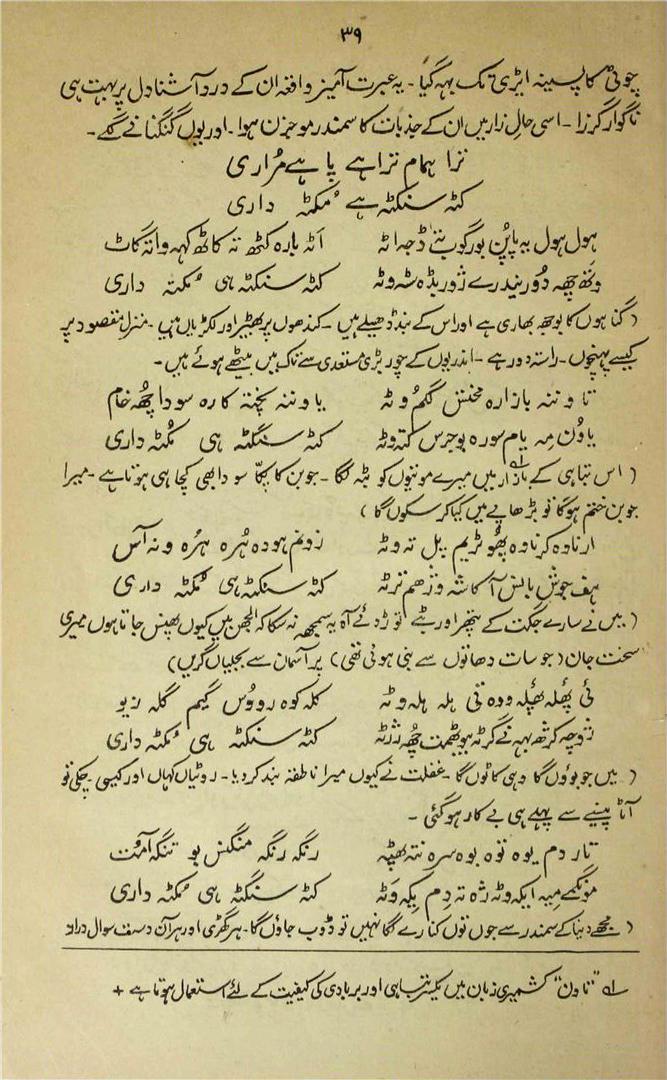 ۳۹
چوٹی کا پسینہ ایڑی تک بہہ گیا۔ یہ عبرت آمیز واقعہ ان کے درد آشنا دل پر بہت ہی
ناگوار گزرا۔ اسی حالِ زار میں ان کے جذبات کا سمندر موجزن ہوا۔ اور یوں گنگنانے لگے۔
ترا ہمام ترا ہے پا ہے مُراری
کٹہ سنکٹہ ہے مُکٹہ داری
ہول ہول یہ پاپُن بور گوبنے ڈجہ اٹہ
اَٹہ بارہ کٹھ تہ کاٹھ کہہ واتہ گاٹ
وَتھ چھہ دُور یندرے ژور بڈہ شہ وٹہ
کٹہ سنکٹہ ہی مُکٹہ داری
(گناہوں کا بوجھ بھاری ہے اور اس کے بند ڈھیلے ہیں۔ کندھوں پر پھیڑ اور لکڑیاں ہیں۔ منزل مقصود پر
کیسے پہنچوں۔ راستہ دور ہے۔ اندریوں کے چور بڑی مستعدی سے تاک میں بیٹھے ہوئے ہیں۔
تاوننہ بازارہ مختس گگمُ وٹہ
یاوننہ پختہ کارہ سودا چھُہ خام
یاوُن مہ یام سورہ بوجرس کتہ وٹہ
کٹہ سنگٹہ ہی مُکٹہ داری
(اس تباہی کے بازار میں میرے موتیوں کو بٹہ لگا۔ جوبن کا پکّا سودا بھی کچا ہی ہوتا ہے۔ میرا
جوبن ختم ہوگا تو بڑھاپے میں کیا کر سکوں گا)
ارناوہ کرناوہ پھُوٹریم پل تہ وٹہ
زونم ہودہ ہُرہ ہرُہ ونہ آس
ہف جوش پانس آکاشہ وژھم ترٹہ
کٹہ سنکٹہ ہی مُکٹہ داری
(میں نے سارے جگت کے پتھر اور بٹے توڑ دئے آہ یہ سمجھ نہ سکا کہ الجھن میں کیوں پھنس جاتا ہوں میری
سخت جان (جو سات دھاتوں سے بنی ہوئی تھی) پر آسمان سے بجلیاں گریں)
ئی پھلہ پھپلہ وودہ تی ہلہ ہلہ وٹہ
کلہ کوہ رووُس گیم گلہ زیو
ژوچہ کرتھ بہہ نے گرٹہ بوٹھمت چھُہ ژرٹہ
کٹہ سنکٹہ ہی مُکٹہ داری
(میں جو بوؤں گا وہی کاٹوں گا۔ غفلت نے کیوں میرا ناطقہ بند کردیا۔ روٹیاں کہاں اور کیسی۔ چکی تو
آٹا پیسنے سے پہلے ہی بے کار ہوگئی۔
تار دم یوہ نوہ بوہ سرہ نتہ پھپٹہ
رنگہ رنگہ منگنس بو تنگہ آمُت
مونگمے میہ ایکہ وٹہ ژہ تہ دِم یکہ وَٹہ
کٹہ سنگٹہ ہی مُکٹہ داری
(مجھے دنیا کے سمندر سے جوں توں کنارے لگا نہیں تو ڈوب جاؤں گا۔ ہر گھڑی اور ہر آن دست سوال دراز
لہ "تاون" کشمیری زبان میں یکسر تباہی اور بربادی کی کیفیت کے لئے استعمال ہوتا ہے +